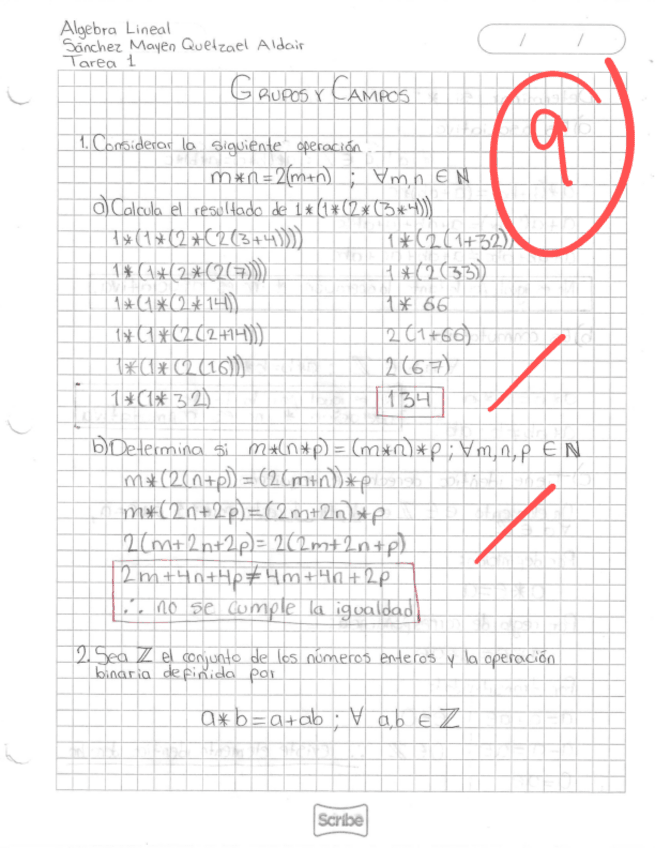 Algebra Lineal
Sánchez Mayen Quetzael Aldair
Tarea 1
/ /
9
GRUPOS Y CAMPOS
1. Considerar la siguiente operación:
m*n=2(m+n) ; ∀m,n ∈ ℕ
a) Calcula el resultado de 1*(1*(2*(3*4)))
1*(1*(2*(2(3+4))))
1*(1*(2*(2(7))))
1*(1*(2*14))
1*(1*(2(2+14)))
1*(1*(2(16)))
1*(1*32)
1*(2(1+32))
1*(2(33))
1* 66
2(1+66)
2(67)
134
b) Determina si m*(n*p)=(m*n)*p ; ∀m,n,p ∈ ℕ
m*(2(n+p))=(2(m+n))*p
m*(2n+2p)=(2m+2n)*p
2(m+2n+2p)=2(2m+2n+p)
2m+4n+4p≠4m+4n+2p
∴ no se cumple la igualdad
2. Sea ℤ el conjunto de los números enteros y la operación
binaria definida por
a*b=a+ab ; ∀ a,b ∈ ℤ
Scribe